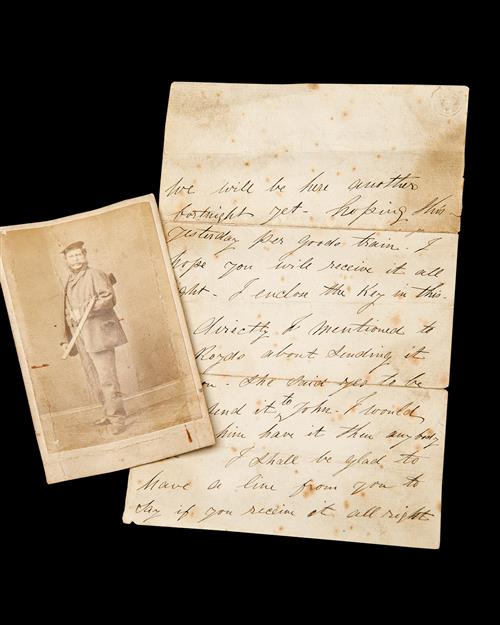 We will be here another
fortnight yet - hoping this -
yesterday per goods train. I
hope you will receive it all
ght - I enclose the Key in this -
directly I mentioned to
Royds about sending it
on - She said yes to be
send it to John - I would
him have it then anybody
I shall be glad to
have a line from you to
say if you receive it all right